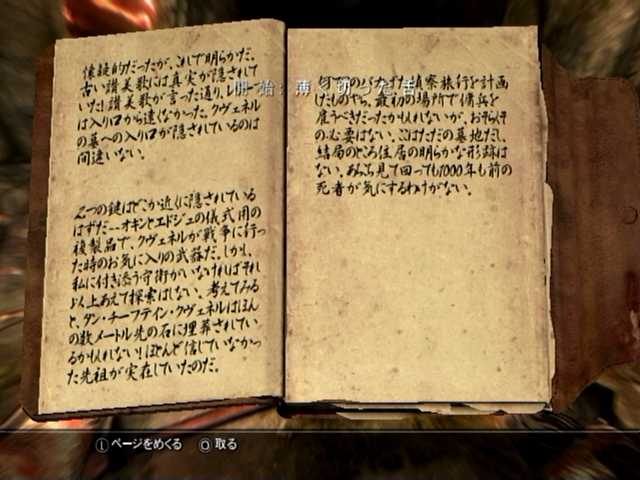 像疑的だったが、これで明らかだ。
古い讃美歌には真実が隠されて
いた!讃美歌が言った通り、レバー
は入り口から遠くなかった。クヴェネル
の墓への入り口が隠されているのは
間違いない。
2つの鍵はどこか近くに隠されている
はずだ--オキンとエドジェの儀式用の
複製品で、クヴェネルが戦争に行っ
た時のお気に入りの武器だ。しかも、
私に付き添う守衛がいなければそれ
以上あえて探索はしない。考えてみる
と、ダン・チーフテイン・クヴェネルはほん
の数メートル先の石に埋葬されてい
るかもしれない!ほとんど信じていなかっ
た先祖が実在していたのだ。
開始: 薄く切った舌
偵察旅行を計画
したものやら。最初の場所で傭兵を
雇うべきだったかもしれないが、おそらくそ
の必要はない。ここはただの墓地だし、
結局のところ住居の明らかな形跡は
ない。あちこち見て回っても1000年も前の
死者が気にするわけがない。
Ⓛ ページをめくる ○ 取る